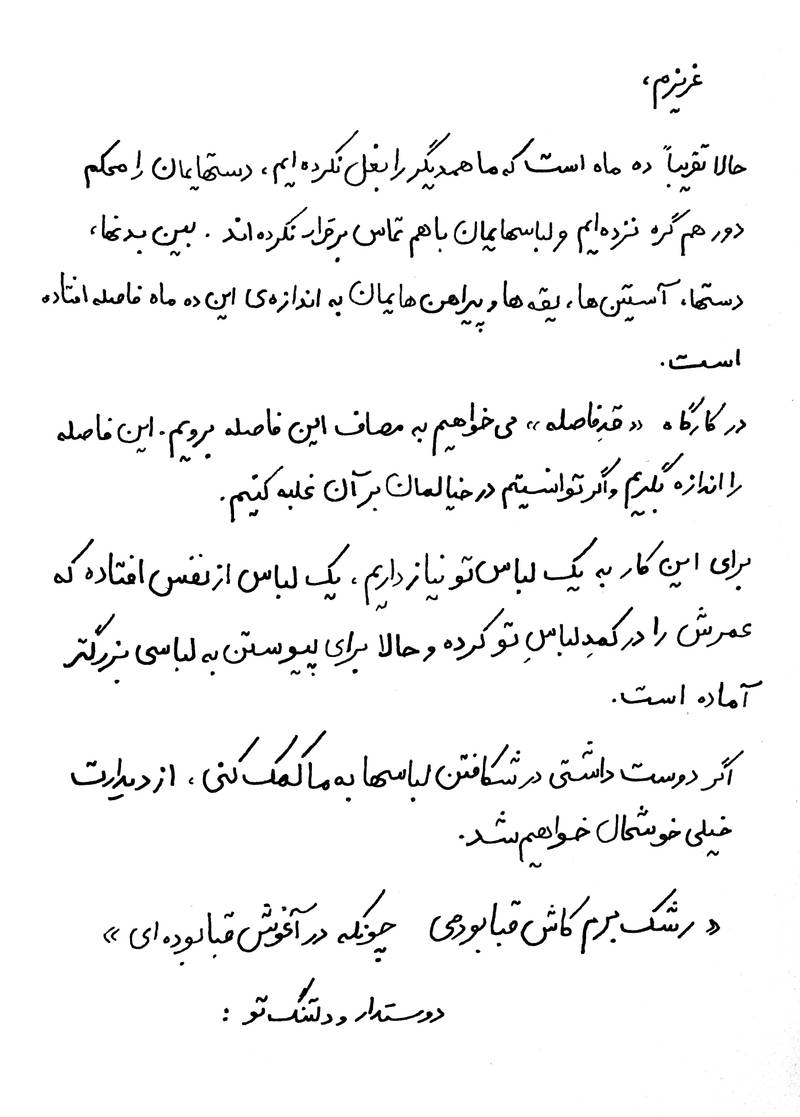 عزیزم،
حالا تقریباً ده ماه است که ما همدیگر را بغل نکرده ایم، دستهایمان را محکم
دور هم گره نزده‌ایم و لباسهایمان با هم تماس برقرار نکرده اند. بین بدنها،
دستها، آستین‌ها، یقه ها و پیراهن هایمان به اندازه‌ی این ده ماه فاصله افتاده
است.
در کارگاه «قدِ فاصله» می‌خواهیم به مصاف این فاصله برویم. این فاصله
را اندازه بگیریم و اگر توانستیم در خیالمان بر آن غلبه کنیم.
برای این کار به یک لباس تو نیاز داریم، یک لباس از نفس افتاده که
عمرش را در کمدِ لباسِ تو کرده و حالا برای پیوستن به لباسی بزرگتر
آماده است.
اگر دوست داشتی در شکافتن لباسها به ما کمک کنی، از دیدارت
خیلی خوشحال خواهیم شد.
«رشک برم کاش قبا بودمی چونکه در آغوش قبا بوده ای»
دوستدار و دلتنگ تو :